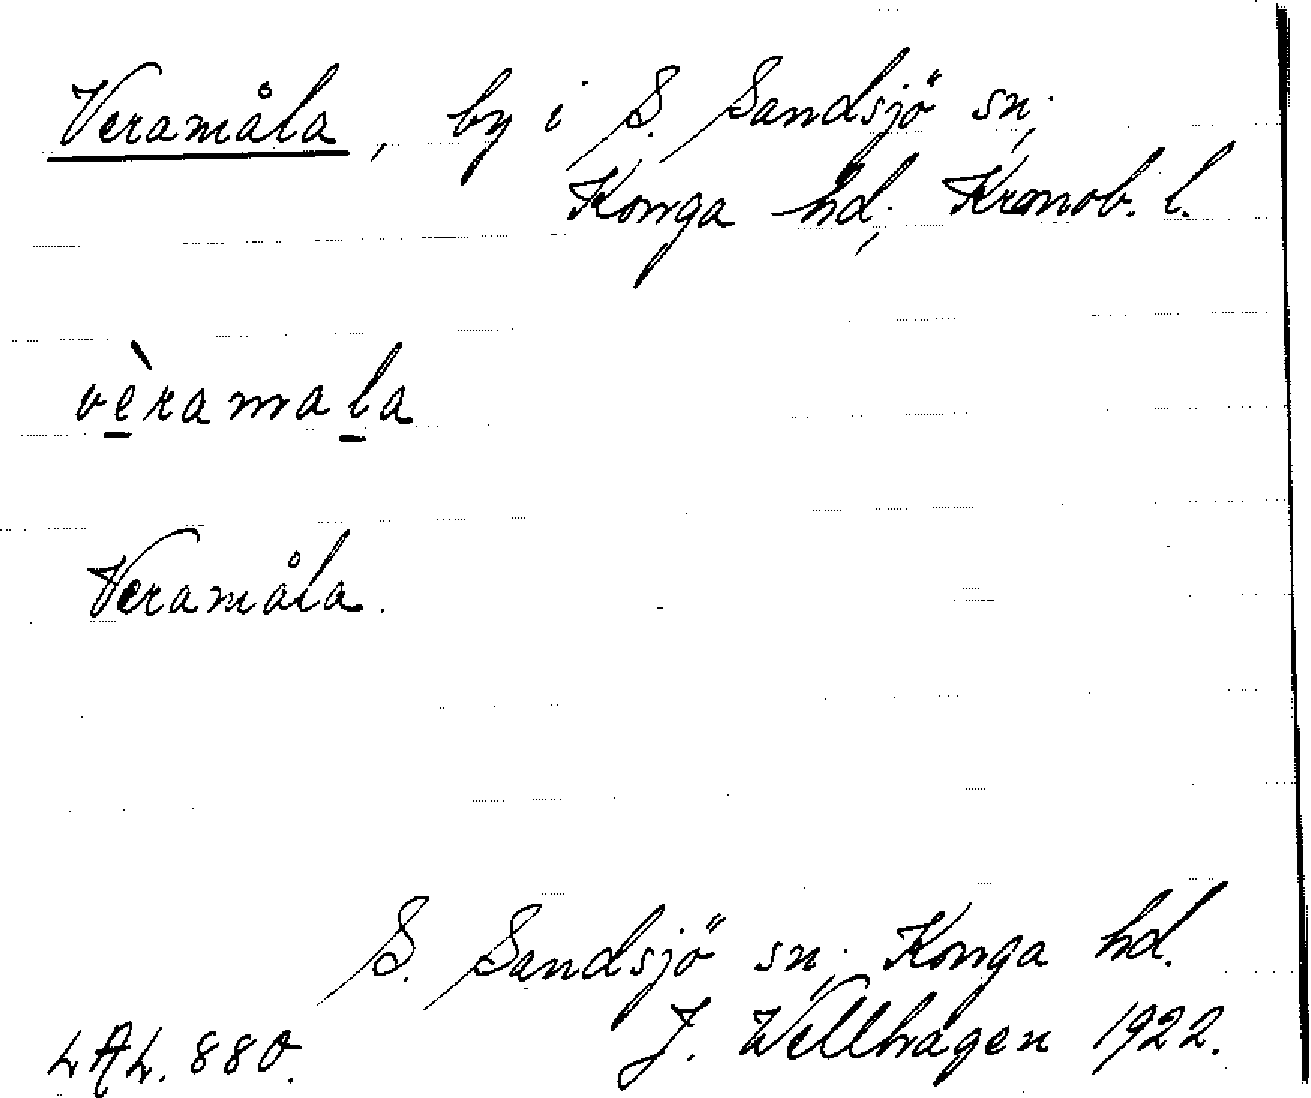 Veramåla, by i S. Sandsjö sn,
Konga hd, Kronob. l.
vèramala
Veramåla.
S. Sandsjö sn, Konga hd.
LAL. 880.
J. Wellhagen 1922.